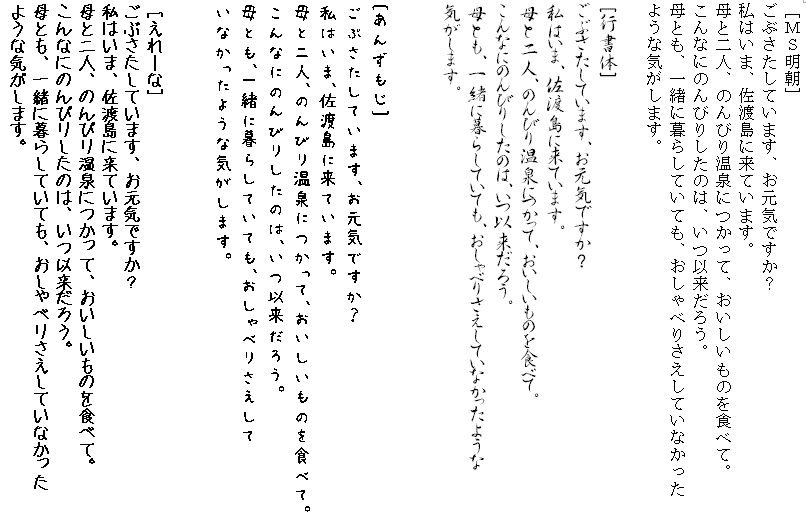 [ＭＳ明朝]
ごぶさたしています、お元気ですか？
私はいま、佐渡島に来ています。
母と二人、のんびり温泉につかって、おいしいものを食べて。
こんなにのんびりしたのは、いつ以来だろう。
母とも、一緒に暮らしていても、おしゃべりさえしていなかった
ような気がします。
[行書体]
ごぶさたしています、お元気ですか？
私はいま、佐渡島に来ています。
母と二人、のんびり温泉につかって、おいしいものを食べて。
こんなにのんびりしたのは、いつ以来だろう。
母とも、一緒に暮らしていても、おしゃべりさえしていなかったような
気がします。
[あんずもじ]
ごぶさたしています、お元気ですか？
私はいま、佐渡島に来ています。
母と二人、のんびり温泉につかって、おいしいものを食べて。
こんなにのんびりしたのは、いつ以来だろう。
母とも、一緒に暮らしていても、おしゃべりさえして
いなかったような気がします。
[えれーな]
ごぶさたしています、お元気ですか？
私はいま、佐渡島に来ています。
母と二人、のんびり温泉につかって、おいしいものを食べて。
こんなにのんびりしたのは、いつ以来だろう。
母とも、一緒に暮らしていても、おしゃべりさえしていなかった
ような気がします。